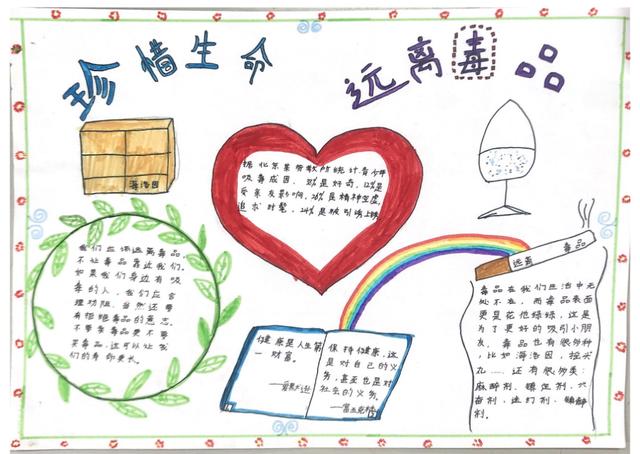 珍惜生命 远离毒品
海洛因
吸毒成因，是好奇，12%是
受亲友影响，是精神空虚，
追求时髦，24%是被引诱上
我们应该远离毒品，
不让毒品靠近我们。
如果我们身边有吸
毒的人，我们应合
理劝阻，当然还要
有拒绝毒品的意志。
不要拿毒品更不要
买毒品，这可以让我
们的寿命更长。
健康是人生第
一财富。
保持健康，这
是对自己的义
务，甚至也是对
社会的义务。
——富兰克林
远离 毒品
毒品在我们生活中无
处不在，而毒品表面
更是花花绿绿，这是
为了更好的吸引小朋
友，毒品也有很多种
，比如海洛因，摇头
丸……还有很多类：
麻醉剂、镇定剂、兴
奋剂、迷幻剂、
剂。